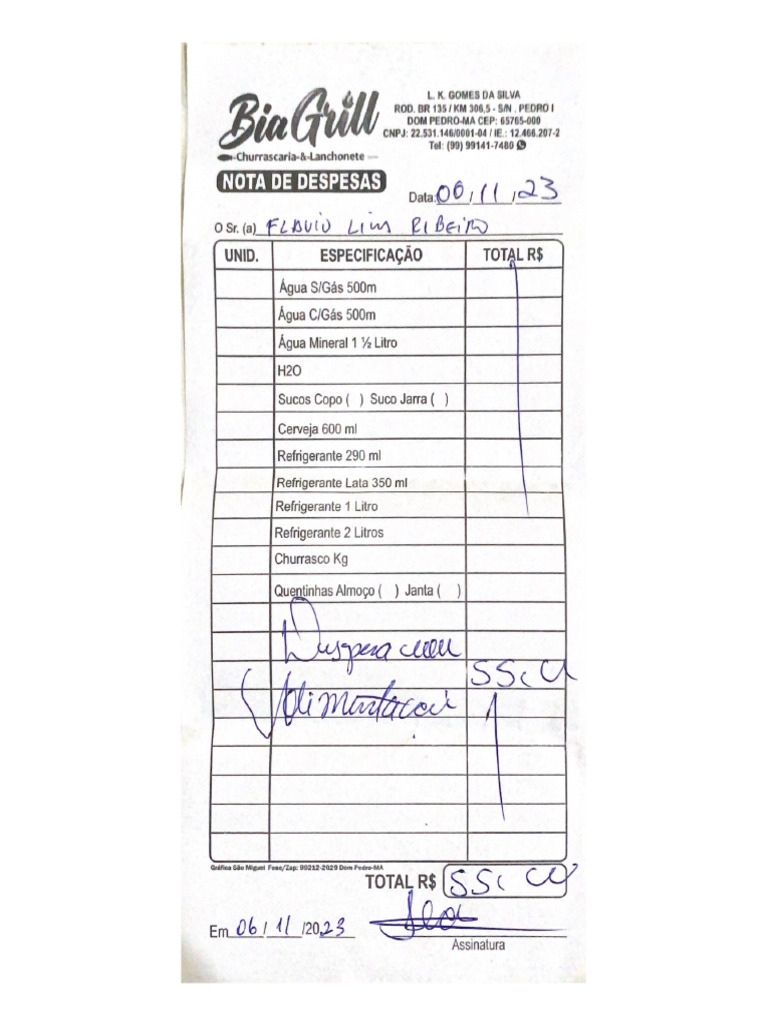 Bia Grill
Churrascaria-&-Lanchonete
L. K. GOMES DA SILVA
ROD. BR 135 / KM 306,5 - S/N . PEDRO I
DOM PEDRO-MA CEP: 65765-000
CNPJ: 22.531.146/0001-04 / IE.: 12.466.207-2
Tel: (99) 99141-7480
NOTA DE DESPESAS
Data: 06/11/23
O Sr. (a) FLAVIO LIMA RIBEIRO
UNID. ESPECIFICAÇÃO TOTAL R$
Água S/Gás 500m
Água C/Gás 500m
Água Mineral 1 ½ Litro
H2O
Sucos Copo ( ) Suco Jarra ( )
Cerveja 600 ml
Refrigerante 290 ml
Refrigerante Lata 350 ml
Refrigerante 1 Litro
Refrigerante 2 Litros
Churrasco Kg
Quentinhas Almoço ( ) Janta ( )
Despesa com
Alimentacao
55,00
Gráfica São Miguel Fone/Zap: 99212-2029 Dom Pedro-MA
TOTAL R$ 55,00
Em 06/11/2023
Assinatura